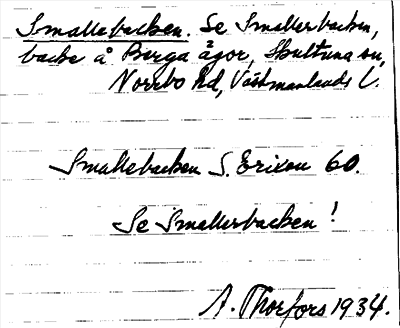 Smallebacken. Se Smallerbacken,
backe å Berga ägor, Skultuna sn,
Norrbo hd, Västmanlands l.
Smallebacken S. Ericson 60.
Se Smallerbacken!
A. Thorfors 1934.